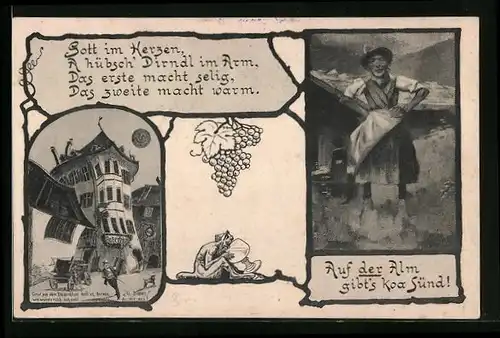 Gott im Herzen,
A hübsch' Dirndl im Arm,
Das erste macht selig,
Das zweite macht warm.
Auf der Alm
gibt's koa Sünd!